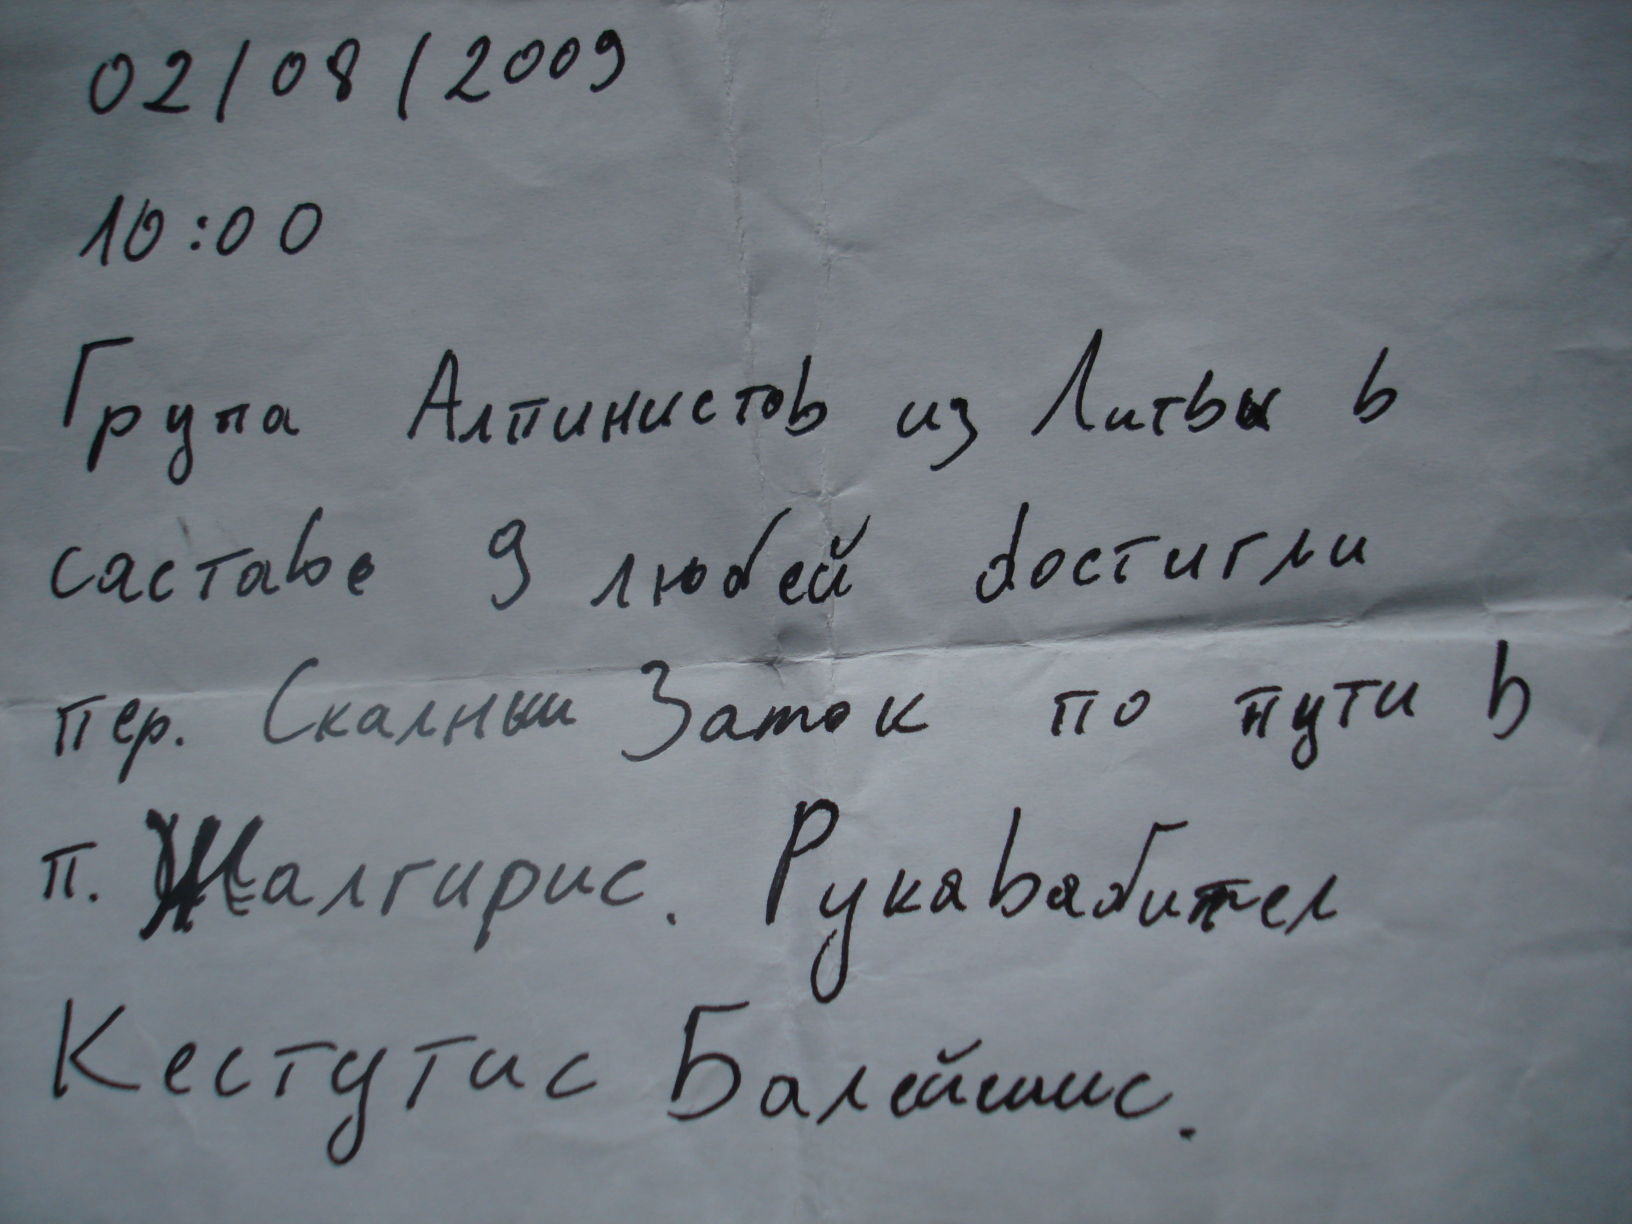 02/08/2009
10:00
Група Алпинистов из Литвы в
саставе 9 любей достигли
пер. Скалный Заток по пути в
п. Жалгирис. Рукавабител
Кестутис Балейшис.